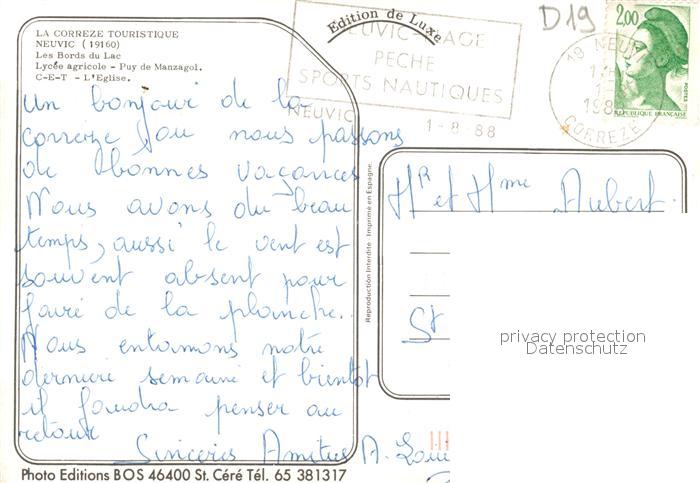 LA CORREZE TOURISTIQUE
NEUVIC (19160)
Les Bords du Lac
Lycée agricole - Puy de Manzagol.
C-E-T - L'Eglise.
Edition de Luxe
PECHE
SPORTS NAUTIQUES
NEUVIC
1-8-88
D19
2,00
REPUBLIQUE FRANÇAISE
19 NEUVIC
CORREZE
Un bonjour de la
correize ou nous passons
de bonnes vacances
Nous avons du beau
temps, aussi le vent est
souvent absent pour
faire de la planche.
Nous entamons notre
derniere semaine et bientot
il faudra penser au
retour
Sinceres Amities A.
Mr et Mme Aubert.
St
Reproduction Interdite - Imprimé en Espagne
privacy protection
Datenschutz
Photo Editions BOS 46400 St. Céré Tél. 65 381317